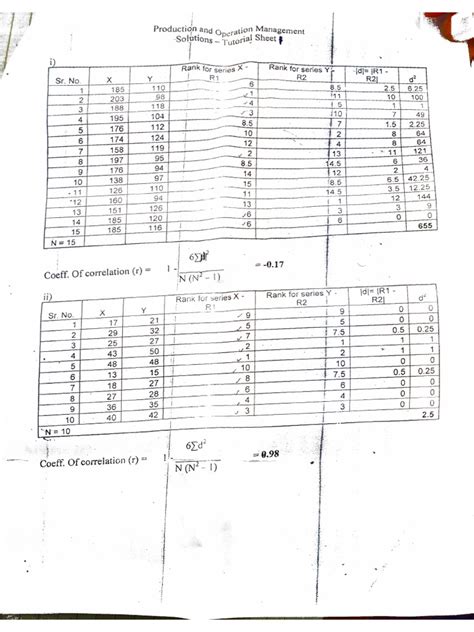 Production and Operation Management
Solutions – Tutorial Sheet
i)
Sr. No. X Y Rank for series X - R1 Rank for series Y - R2 |d|= |R1 - R2| d²
1 185 110 6 8.5 2.5 6.25
2 203 98 1 11 10 100
3 188 118 4 5 1 1
4 195 104 3 10 7 49
5 176 112 8.5 7 1.5 2.25
6 174 124 10 2 8 64
7 158 119 12 4 8 64
8 197 95 2 13 11 121
9 176 94 8.5 14.5 6 36
10 138 97 14 12 2 4
11 126 110 15 8.5 6.5 42.25
12 160 94 11 14.5 3.5 12.25
13 151 126 13 1 12 144
14 185 120 6 3 3 9
15 185 116 6 6 0 0
N = 15 655
Coeff. Of correlation (r) = 1 - 6∑d² / N (N² – 1) = -0.17
ii)
Sr. No. X Y Rank for series X - R1 Rank for series Y - R2 |d|= |R1 - R2| d²
1 17 21 9 9 0 0
2 29 32 5 5 0 0
3 25 27 7 7.5 0.5 0.25
4 43 50 2 1 1 1
5 48 48 1 2 1 1
6 13 15 10 10 0 0
7 18 27 8 7.5 0.5 0.25
8 27 28 6 6 0 0
9 36 35 4 4 0 0
10 40 42 3 3 0 0
N = 10 2.5
Coeff. Of correlation (r) = 1 - 6∑d² / N (N² – 1) = 0.98